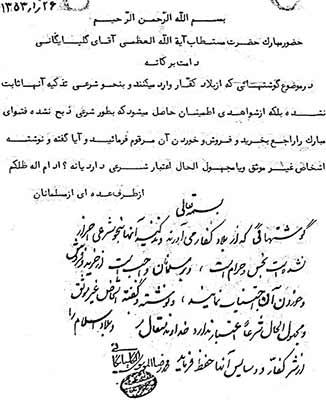 ۲۶ر۱ر۱۳۵۳
بسم الله الرحمن الرحیم
حضور مبارک حضرت مستطاب آیة الله العظمی آقای گلپایگانی
دامت برکاته
در موضوع گوشتهائی که از بلاد کفار وارد میکنند و بنحو شرعی تذکیه آنها ثابت
نشده بلکه از شواهدی اطمینان حاصل میشود که بطور شرعی ذبح نشده فتوای
مبارک را راجع بخرید و فروش و خوردن آن مرقوم فرمائید و آیا گفته و نوشته
اشخاص غیر موثق و یا مجهول الحال اعتبار شرعی دارد یا نه ؟ ادام اله ظلکم
از طرف عده ای از مسلمانان
بسمه تعالی
گوشتهائی که از بلاد کفار می آورند و تذکیه آنها بنحو شرعی احراز
نشده نجس و حرام است ، و بر مسلمانان واجب است از خرید و فروش
و خوردن آن اجتناب نمایند ، و نوشته و گفته اشخاص غیر موثق
و مجهول الحال شرعاً اعتبار ندارد خداوند متعال بلاد اسلام را
از شر کفار و دسایس آنها حفظ فرماید محمد رضا الموسوی الگلپایگانی